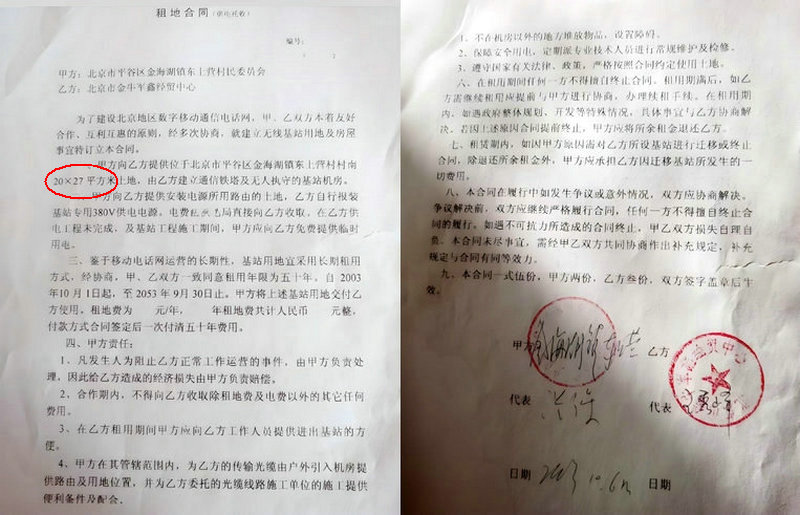 租地合同
编号:
甲方: 北京市平谷区金海湖镇东上营村民委员会
乙方: 北京市金牛军鑫经贸中心
为了建设北京地区数字移动通信电话网, 甲、乙双方本着友好
合作、互利互惠的原则, 经多次协商, 就建立无线基站用地及房屋
事宜特订立本合同。
甲方向乙方提供位于北京市平谷区金海湖镇东上营村村南
20×27 平方米土地, 由乙方建立通信铁塔及无人执守的基站机房。
甲方向乙方提供安装电源所用路由的土地, 乙方自行报装
基站专用380V供电电源。电费由供电局直接向乙方收取, 在乙方供
电工程未完成, 及基站工程施工期间, 甲方应向乙方免费提供临时
用电。
三、鉴于移动电话网运营的长期性, 基站用地宜采用长期租用
方式, 经协商, 甲、乙双方一致同意租用年限为五十年。自 2003
年10月1日起, 至 2053 年 9月30日止。甲方将上述基站用地交付乙
方使用, 租地费为 元/年, 年租地费共计人民币 元整,
付款方式合同签定后一次付清五十年费用。
四、甲方责任:
1、凡发生人为阻止乙方正常工作运营的事件, 由甲方负责处
理, 因此给乙方造成的经济损失由甲方负责赔偿。
2、合作期内, 不得向乙方收取除租地费及电费以外的其它任何
费用。
3、在乙方租用期间甲方应向乙方工作人员提供进出基站的方
便。
4、甲方在其管辖范围内, 为乙方的传输光缆由户外引入机房提
供路由及用地位置, 并为乙方委托的光缆线路施工单位的施工提供
便利条件及配合。
1、不在机房以外的地方堆放物品, 设置障碍。
2、保障安全用电, 定期派专业技术人员进行常规维护及检修。
3、遵守国家有关法律、政策, 严格按照合同约定使用土地。
六、在租用期间任何一方不得擅自终止合同。租用期满后, 如乙
方需继续租用应提前与甲方进行协商, 办理续租手续。在租用期
内, 如遇政府整体规划、开发等特殊情况, 具体事宜与乙方协商解
决, 若因上述原因合同提前终止, 甲方应将所余租金退还乙方。
七、租赁期内, 如因甲方原因需对乙方所设基站进行迁移或终止
合同, 除退还所余租金外, 甲方应承担乙方因迁移基站所发生的一
切费用。
八、本合同在履行中如发生争议或意外情况, 双方应协商解决。
争议解决前, 双方应继续严格履行合同, 任何一方不得擅自终止合同
的履行。如遇不可抗力所造成的合同终止, 甲乙双方损失自理自
负。本合同未尽事宜, 需经甲乙双方共同协商作出补充规定, 补充
规定与合同有同等效力。
九、本合同一式伍份, 甲方两份, 乙方叁份, 双方签字盖章后生
效。
甲方 乙方
代表 代表
日期 2003 10.6 日期